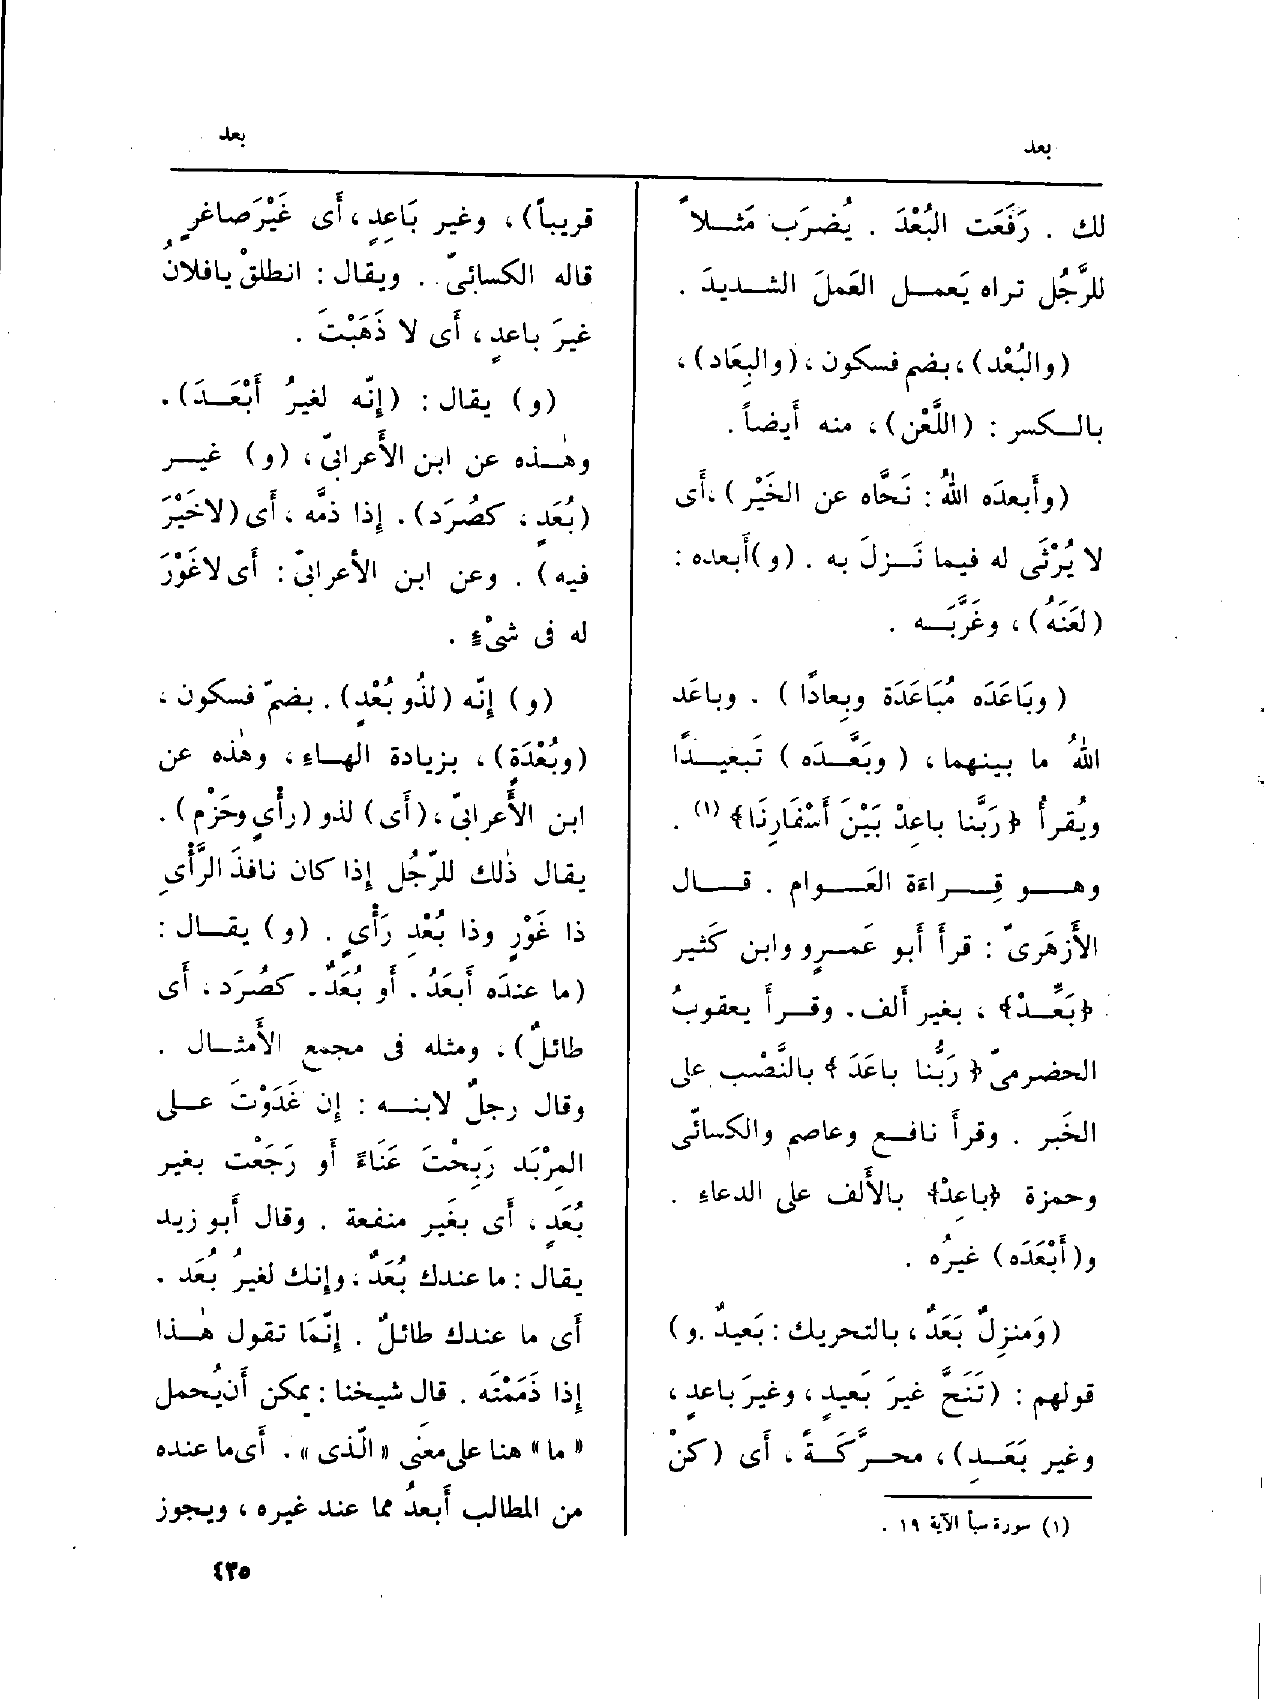 بعد
بعد
لك . رَفَعَت البُعْدَ . يُضرَب مَثــلاً
للرَّجُل تراه يَعمــل العَملَ الشــديدَ .
(والبُعْد)، بضم فسكون ، (والبِعَاد)،
بالــكسر : (اللَّعْن)، منه أَيضاً.
(وأَبعدَه اللهُ : نَحَّاه عن الخَيْر)،أَى
لا يُرْثَى له فيما نَــزلَ به . (و)أَبعده :
(لعَنَهُ) ، وغَرَّبَــه .
(وبَاعَدَه مُبَاعَدَة وبِعادًا) . وباعَد
اللهُ ما بينهما، (وبَعَّــدَه) تَبعيــدًا
ويُقرأُ ﴿رَبَّنا باعِدْ بَيْنَ أَسْفَارِنَا﴾ (١) .
وهــو قِــراءَة العَــوام . قــال
الأَزهَرىّ : قرأَ أَبو عَمــرٍو وابن كَثير
﴿بَعِّــدْ﴾ ، بغير أَلف. وقــرأَ يعقوبُ
الحضرمىّ ﴿رَبُّنا باعَدَ﴾ بالنَّصْب على
الخَبر . وقرأَ نافــع وعاصم والكسائىّ
وحمزة ﴿باعِدْ﴾ بالأَلف على الدعاءِ .
و(أَبْعَدَه) غيرُه .
(وَمنزِلٌ بَعَدٌ، بالتحريك : بَعيدٌ .و)
قولهم : (تَنَحَّ غيرَ بَعيدٍ، وغيرَ باعدٍ،
وغير بَعَــدٍ)، محــرَّكَــةً ، أَى (كنْ
(١) سورة سبأ الآية ١٩ .
قريباً) ، وغير بَاعِدٍ، أَى غَيْرَ صاغرٍ
قاله الكسائىّ . ويقال : انطلقْ يافلانُ
غيرَ باعدٍ، أَى لا ذَهَبْتَ .
(و) يقال : (إِنّه لغيرُ أَبْعَــدَ).
وهٰــذه عن ابن الأَعرابىّ ، (و) غيــر
(بُعَدٍ ، كصُرَد). إِذا ذمَّه ، أَى (لاخَيْرَ
فيه) . وعن ابن الأَعرابىّ : أَى لاغَوْرَ
له فى شىْءٍ .
(و) إِنّه (لذُو بُعْدٍ). بضمّ فسكون ،
(وبُعْدَةٍ)، بزيادة الهــاءِ، وهٰذه عن
ابن الأَعرابىّ ،(أَى) لذو (رأْىٍ وحَزْم) .
يقال ذٰلك للرّجُل إِذا كان نافذَ الرَّأْىِ
ذا غَوْرٍ وذا بُعْدِ رَأْىٍ . (و) يقــال :
(ما عندَه أَبعَدُ . أَو بُعَدٌ. كصُرَد ، أَى
طائلٌ) ، ومثله فى مجمع الأَمثــال .
وقال رجلٌ لابنــه : إِن غَدَوْتَ عــلى
المِرْبَد رَبِحْتَ عَنَاءً أَو رَجَعْت بغير
بُعَدٍ ، أَى بغَير منفعة . وقال أَبو زيد
يقال : ما عندك بُعَدٌ، وإِنك لغيرُ بُعَد .
أَى ما عندك طائلٌ . إِنّمَا تقول هٰــذا
إِذا ذَمَمْتَه . قال شيخنا : يمكن أَن يُحمل
« ما » هنا على معْنَى « الَّذى » . أَى ما عنده
من المطالب أَبعدُ مما عند غيره ، ويجوز
٤٣٥